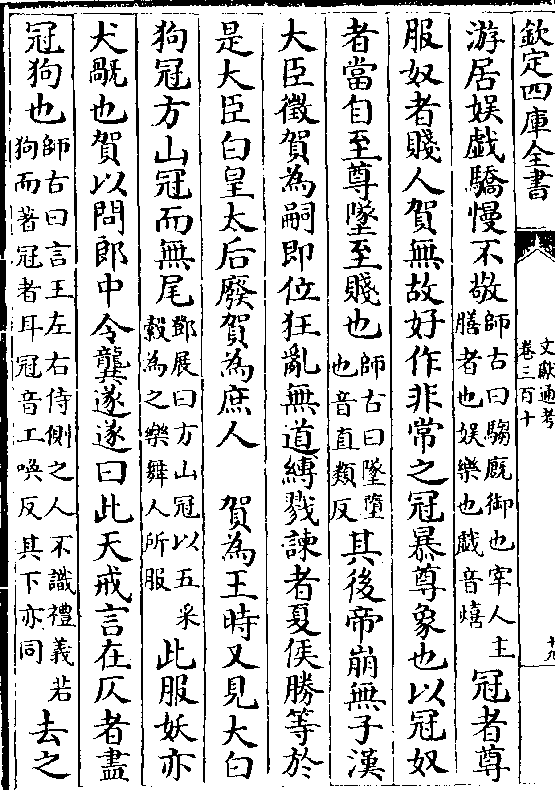 欽定四庫全書
文獻通考
卷三百十
游居娛戲驕慢不敬師古曰騶廐御也宰人主膳者也娛樂也戲音嬉冠者尊
服奴者賤人賀無故好作非常之冠暴尊象也以冠奴
者當自至尊墜至賤也師古曰墜墮也音直類反其後帝崩無子漢
大臣徵賀為嗣即位狂亂無道縛戮諫者夏侯勝等於
是大臣白皇太后廢賀為庶人 賀為王時又見大白
狗冠方山冠而無尾鄧展曰方山冠以五采縠為之樂舞人所服此服妖亦
犬旤也賀以問郎中令龔遂遂曰此天戒言在仄者盡
冠狗也師古曰言王左右侍側之人不識禮義若狗而著冠者耳冠音工喚反其下亦同去之